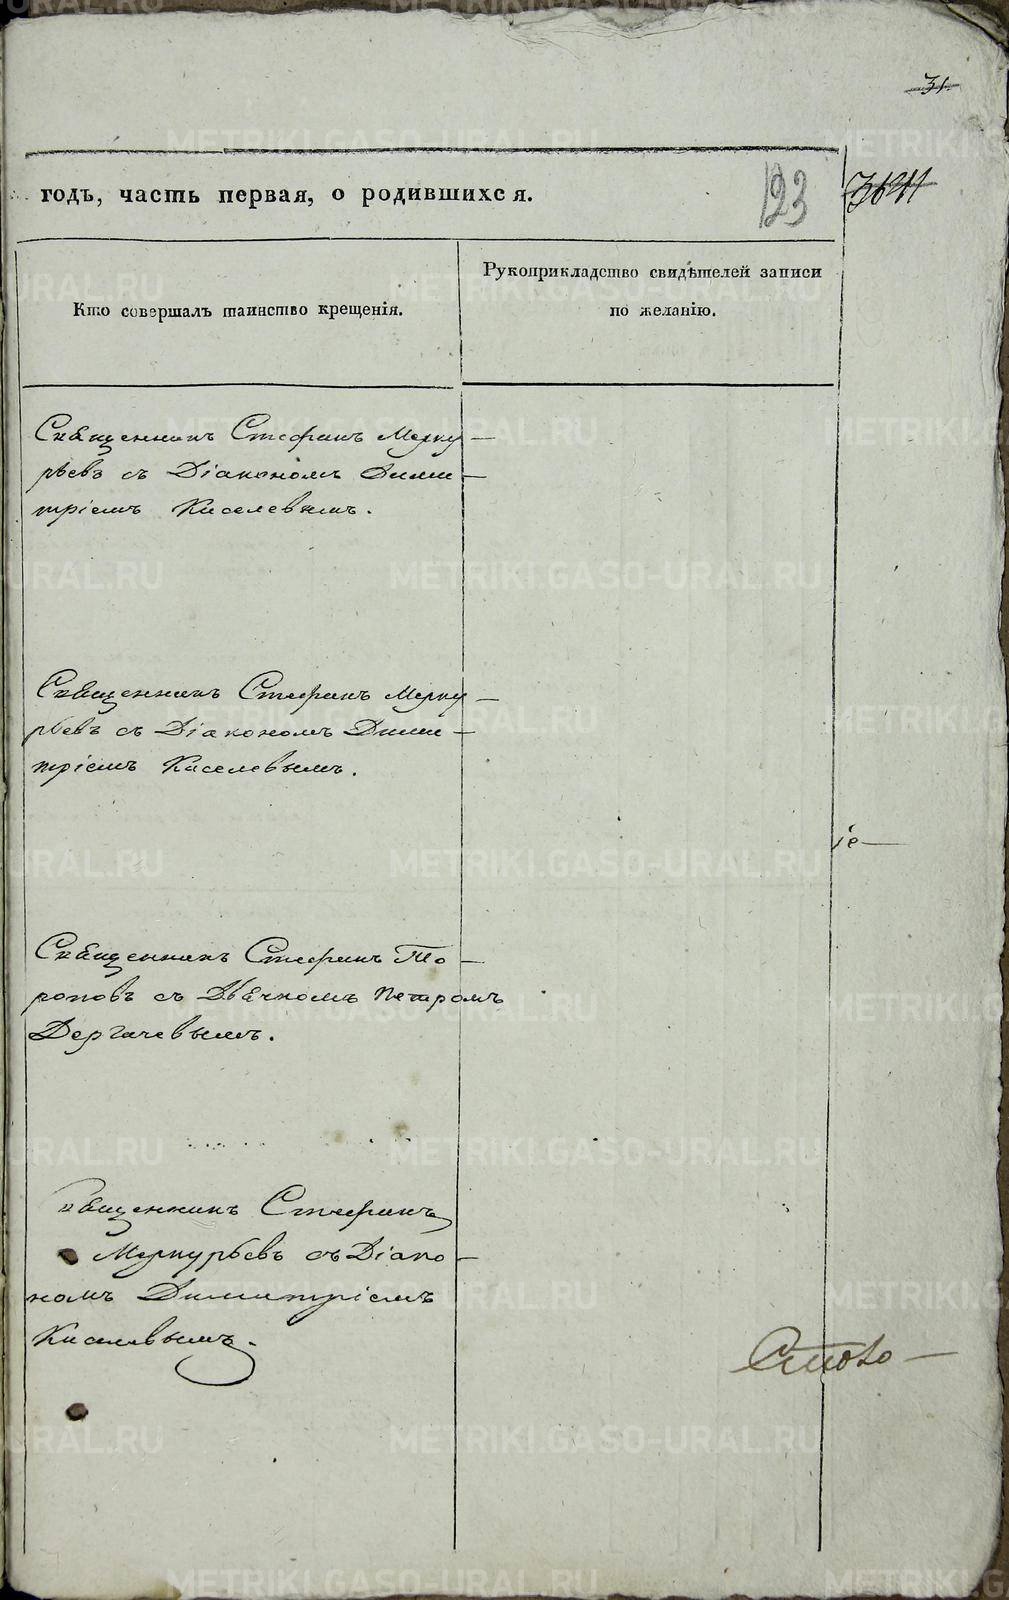 31
годъ, часть первая, о родившихся.
123
Кто совершалъ таинство крещенія.
Рукоприкладство свидѣтелей записи
по желанію.
Священникъ Стефанъ Мерку-
рьевъ съ Діакономъ Дими-
тріемъ Киселевымъ.
Священникъ Стефанъ Мерку-
рьевъ съ Діакономъ Дими-
тріемъ Киселевымъ.
іе-
Священникъ Стефанъ То-
роповъ съ Дьячкомъ Петромъ
Дергачевымъ.
Священникъ Стефанъ
Меркурьевъ съ Діако-
номъ Димитріемъ
Киселевымъ.
METRIKI.GASO-URAL.RU